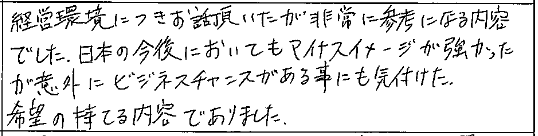 経営環境につきお話頂いたが非常に参考になる内容
でした。日本の今後においてもマイナスイメージが強かった
が意外にビジネスチャンスがある事にも気付けた。
希望の持てる内容でありました。